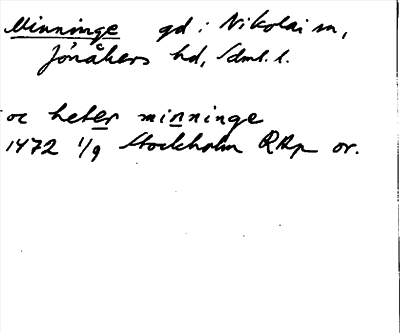 Minninge gd i Nikolai sn,
Jönåkers hd, Sdml. l.
oc heter minninge
1472 1/9 Stockholm RAp or.